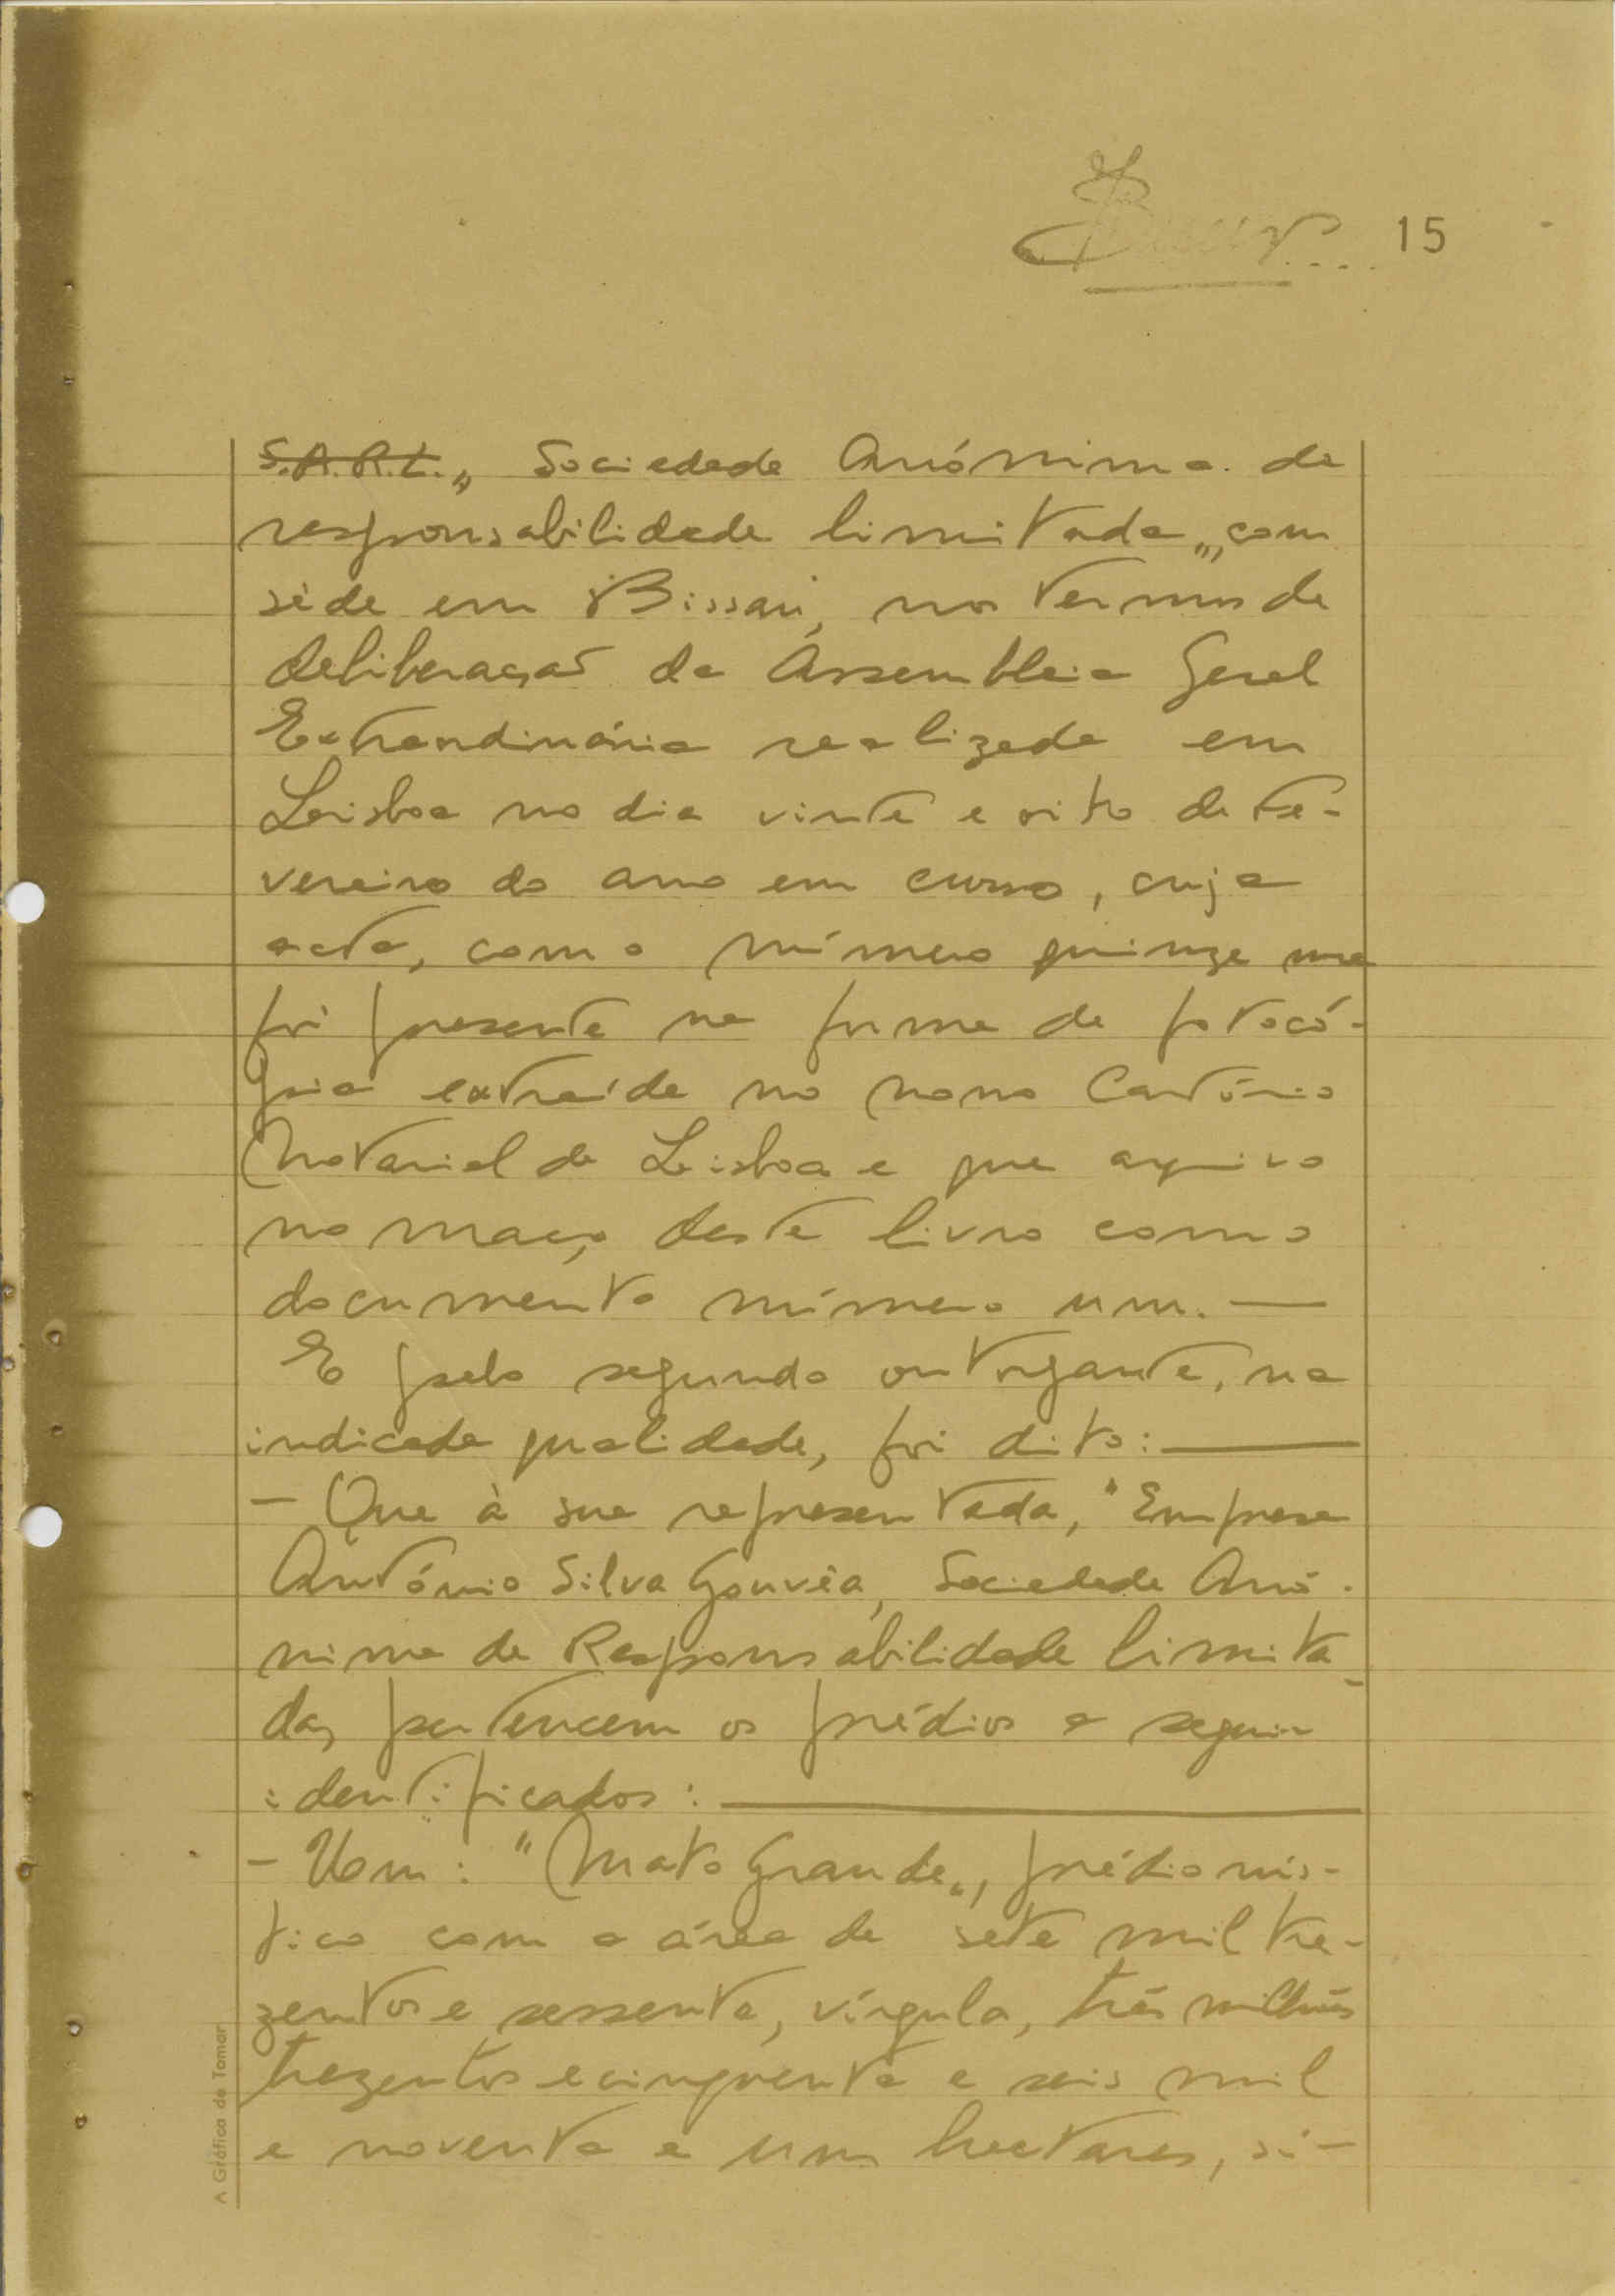 15
S.A.R.L.„ Sociedade Anónima de
responsabilidade limitada„, com
séde em Bissau, nos termos da
deliberação da Assembleia Geral
Extraordinária realizada em
Lisboa no dia vinte e oito de Fe-
vereiro do ano em curso, cuja
acta, com o número quinze me
foi presente na forma de fotocó-
pia extraída no nono Cartório
Notarial de Lisboa e que arquivo
no maço deste livro como
documento número um. —
E pelo segundo outorgante, na
indicada qualidade, foi dito: —
- Que à sua representada, "Empresa
António Silva Gouvêa, Sociedade Anó-
nima de Responsabilidade limita-
da, pertencem os prédios a seguir
identificados: —
- Um: "Mato Grande„, prédio rús-
tico com a área de sete mil tre-
zentos e sessenta, vírgula, três milhões
trezentos e cinquenta e seis mil
e noventa e um hectares, si-
A Gráfica de Tomar